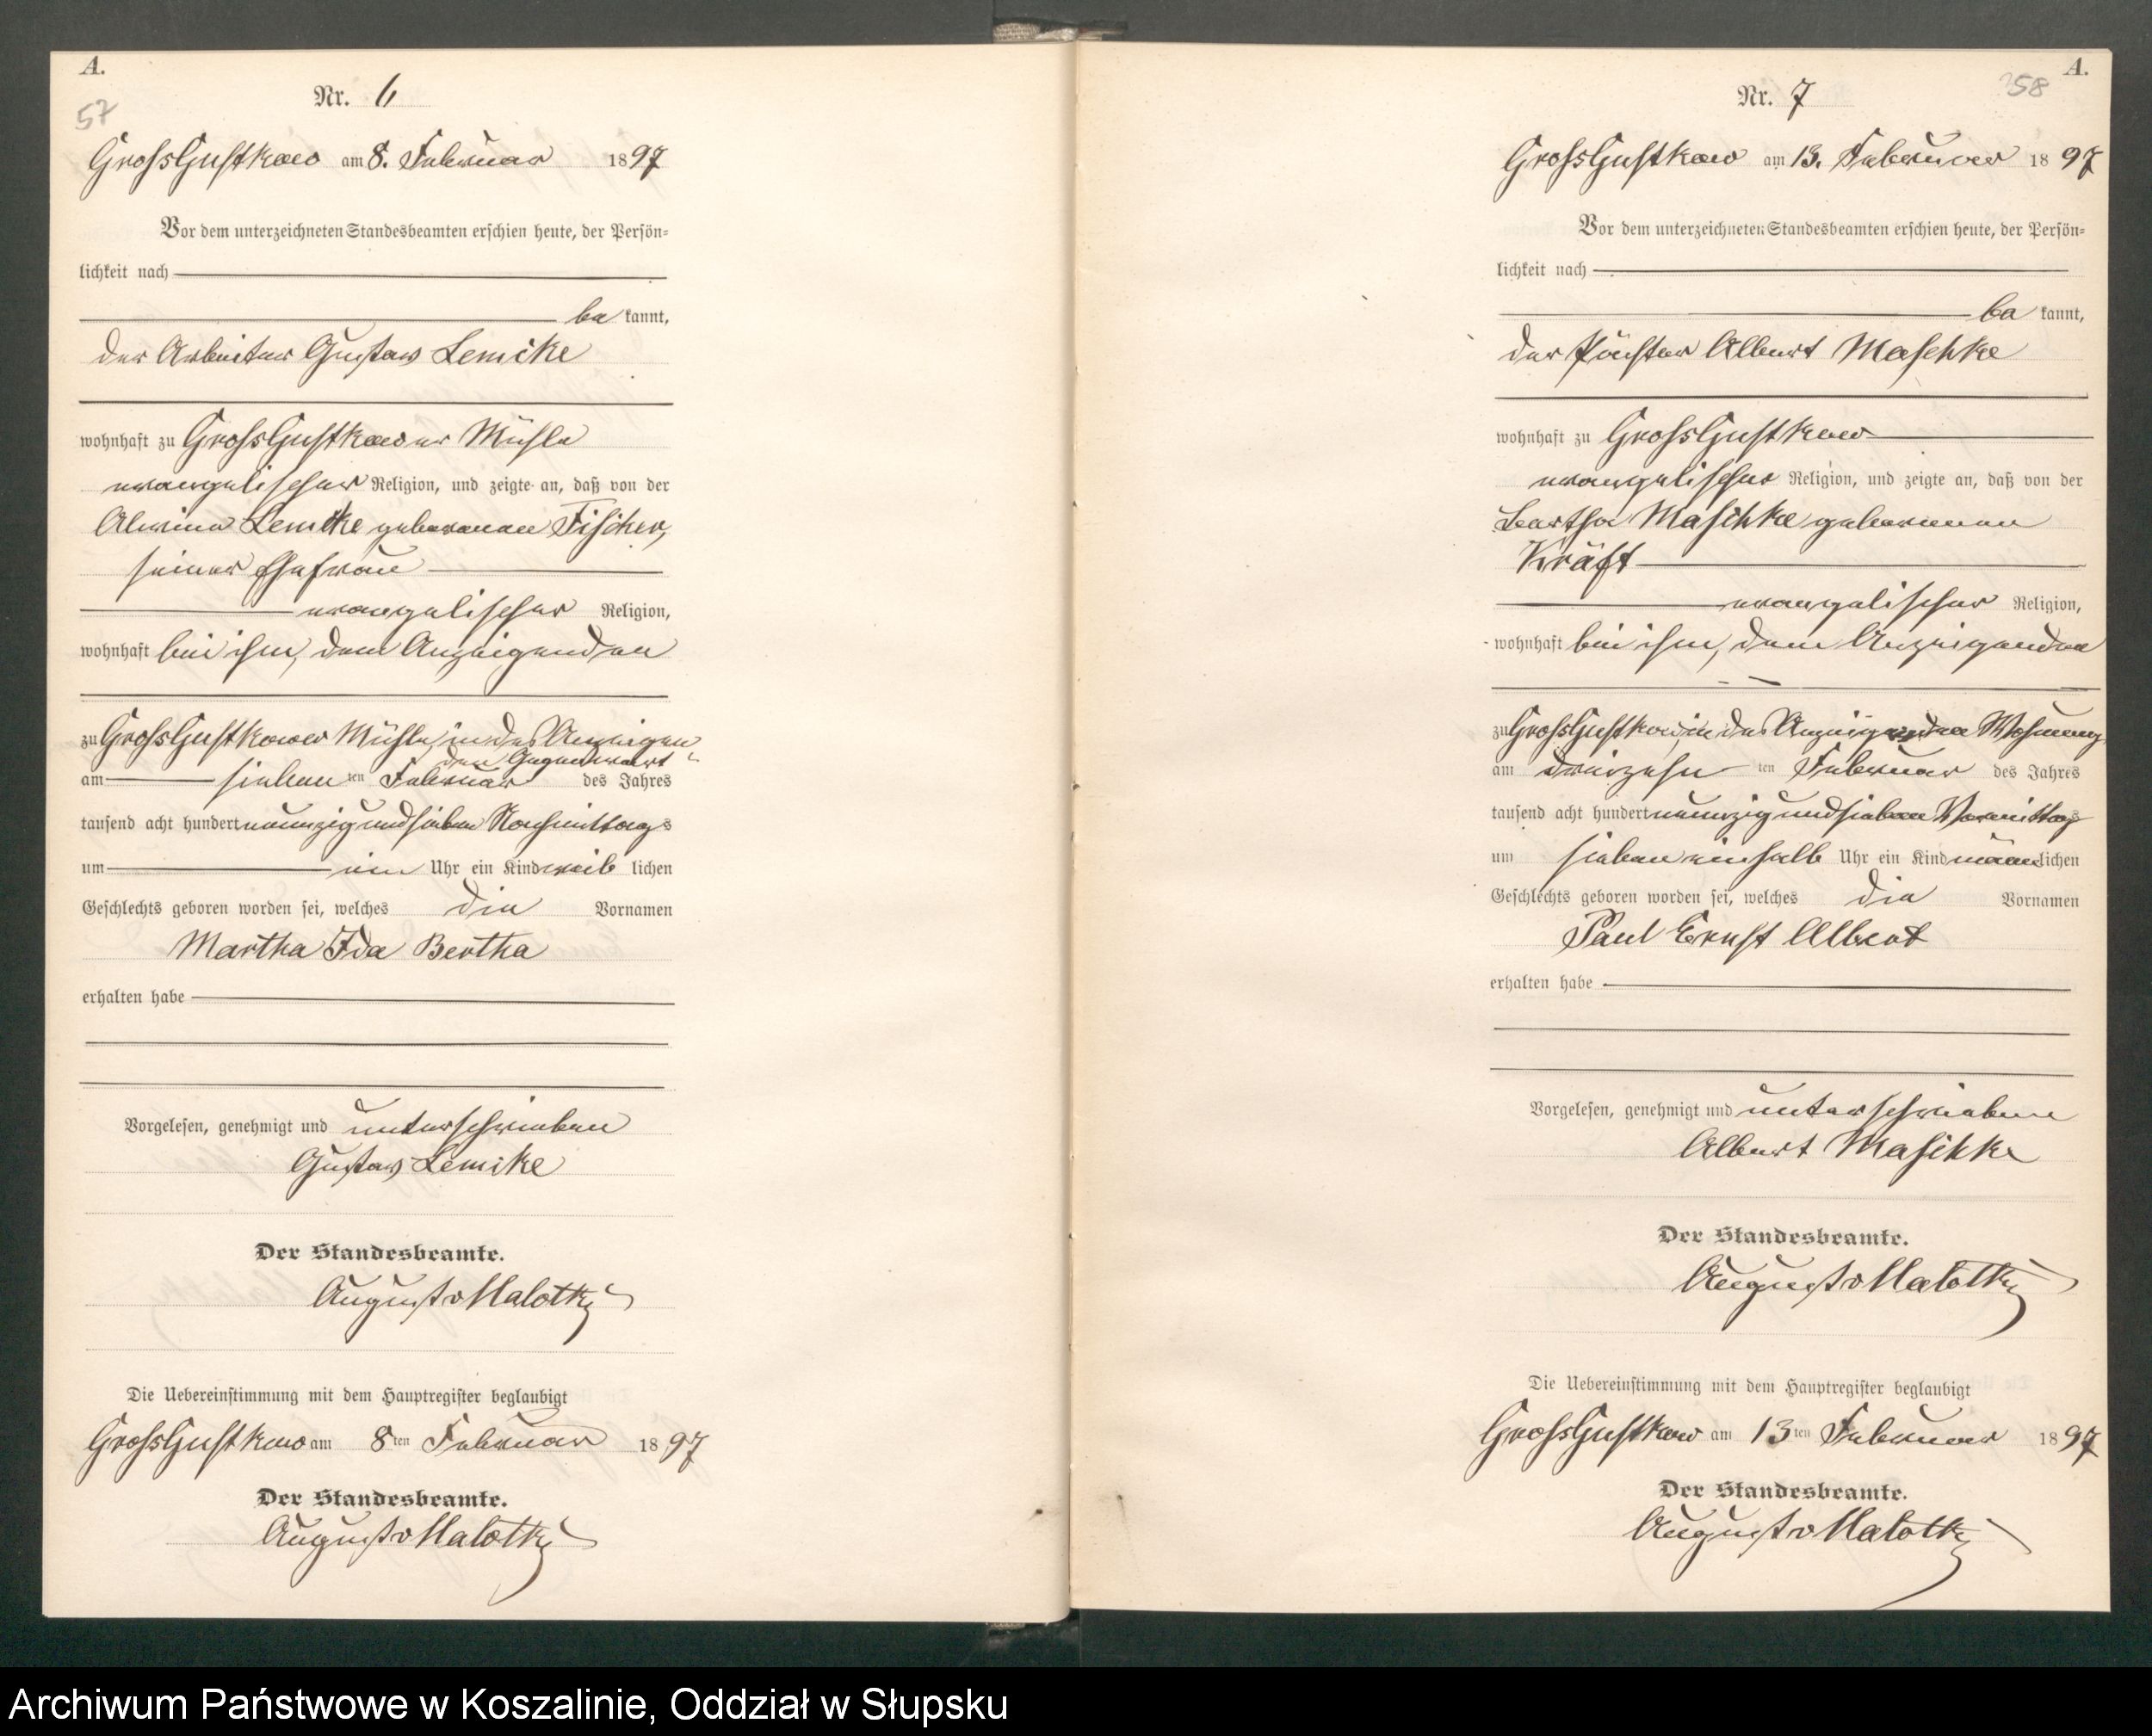 A.
57
Nr. 6
Gross Gustkow am 8. Februar 1897
Vor dem unterzeichneten Standesbeamten erschien heute, der Persön=
lichkeit nach
be kannt,
der Arbeiter Gustav Lemcke
wohnhaft zu Gross Gustkower Mühle
evangelischer Religion, und zeigte an, daß von der
Alwine Lemcke geborenen Fischer,
seiner Ehefrau
evangelischer Religion,
wohnhaft bei ihm, dem Anzeigenden
zu Gross Gustkower Mühle, in des Anzeigen
den Gegenwart
am sieben ten Februar des Jahres
tausend acht hundert neunzig und sieben Nachmittags
um ein Uhr ein Kind weib lichen
Geschlechts geboren worden sei, welches die Vornamen
Martha Ida Bertha
erhalten habe
Vorgelesen, genehmigt und unterschrieben
Gustav Lemcke
Der Standesbeamte.
August v Malottki
Die Uebereinstimmung mit dem Hauptregister beglaubigt
Gross Gustkow am 8ten Februar 1897
Der Standesbeamte.
August v Malottki
A.
58
Nr. 7
Gross Gustkow am 13. Februar 1897
Vor dem unterzeichneten Standesbeamten erschien heute, der Persön=
lichkeit nach
be kannt,
der Albert Maschke
wohnhaft zu Gross Gustkow
evangelischer Religion, und zeigte an, daß von der
Bertha Maschke geborenen
Kräft
evangelischer Religion,
wohnhaft bei ihm, dem Anzeigenden
zu Gross Gustkow, in des Anzeigenden Wohnung
am dreizehn ten Februar des Jahres
tausend acht hundert neunzig und sieben Vormittags
um sieben einhalb Uhr ein Kind männlichen
Geschlechts geboren worden sei, welches die Vornamen
Paul Ernst Albert
erhalten habe
Vorgelesen, genehmigt und unterschrieben
Albert Maschke
Der Standesbeamte.
August v Malottki
Die Uebereinstimmung mit dem Hauptregister beglaubigt
Gross Gustkow am 13ten Februar 1897
Der Standesbeamte.
August v Malottki
Archiwum Państwowe w Koszalinie, Oddział w Słupsku